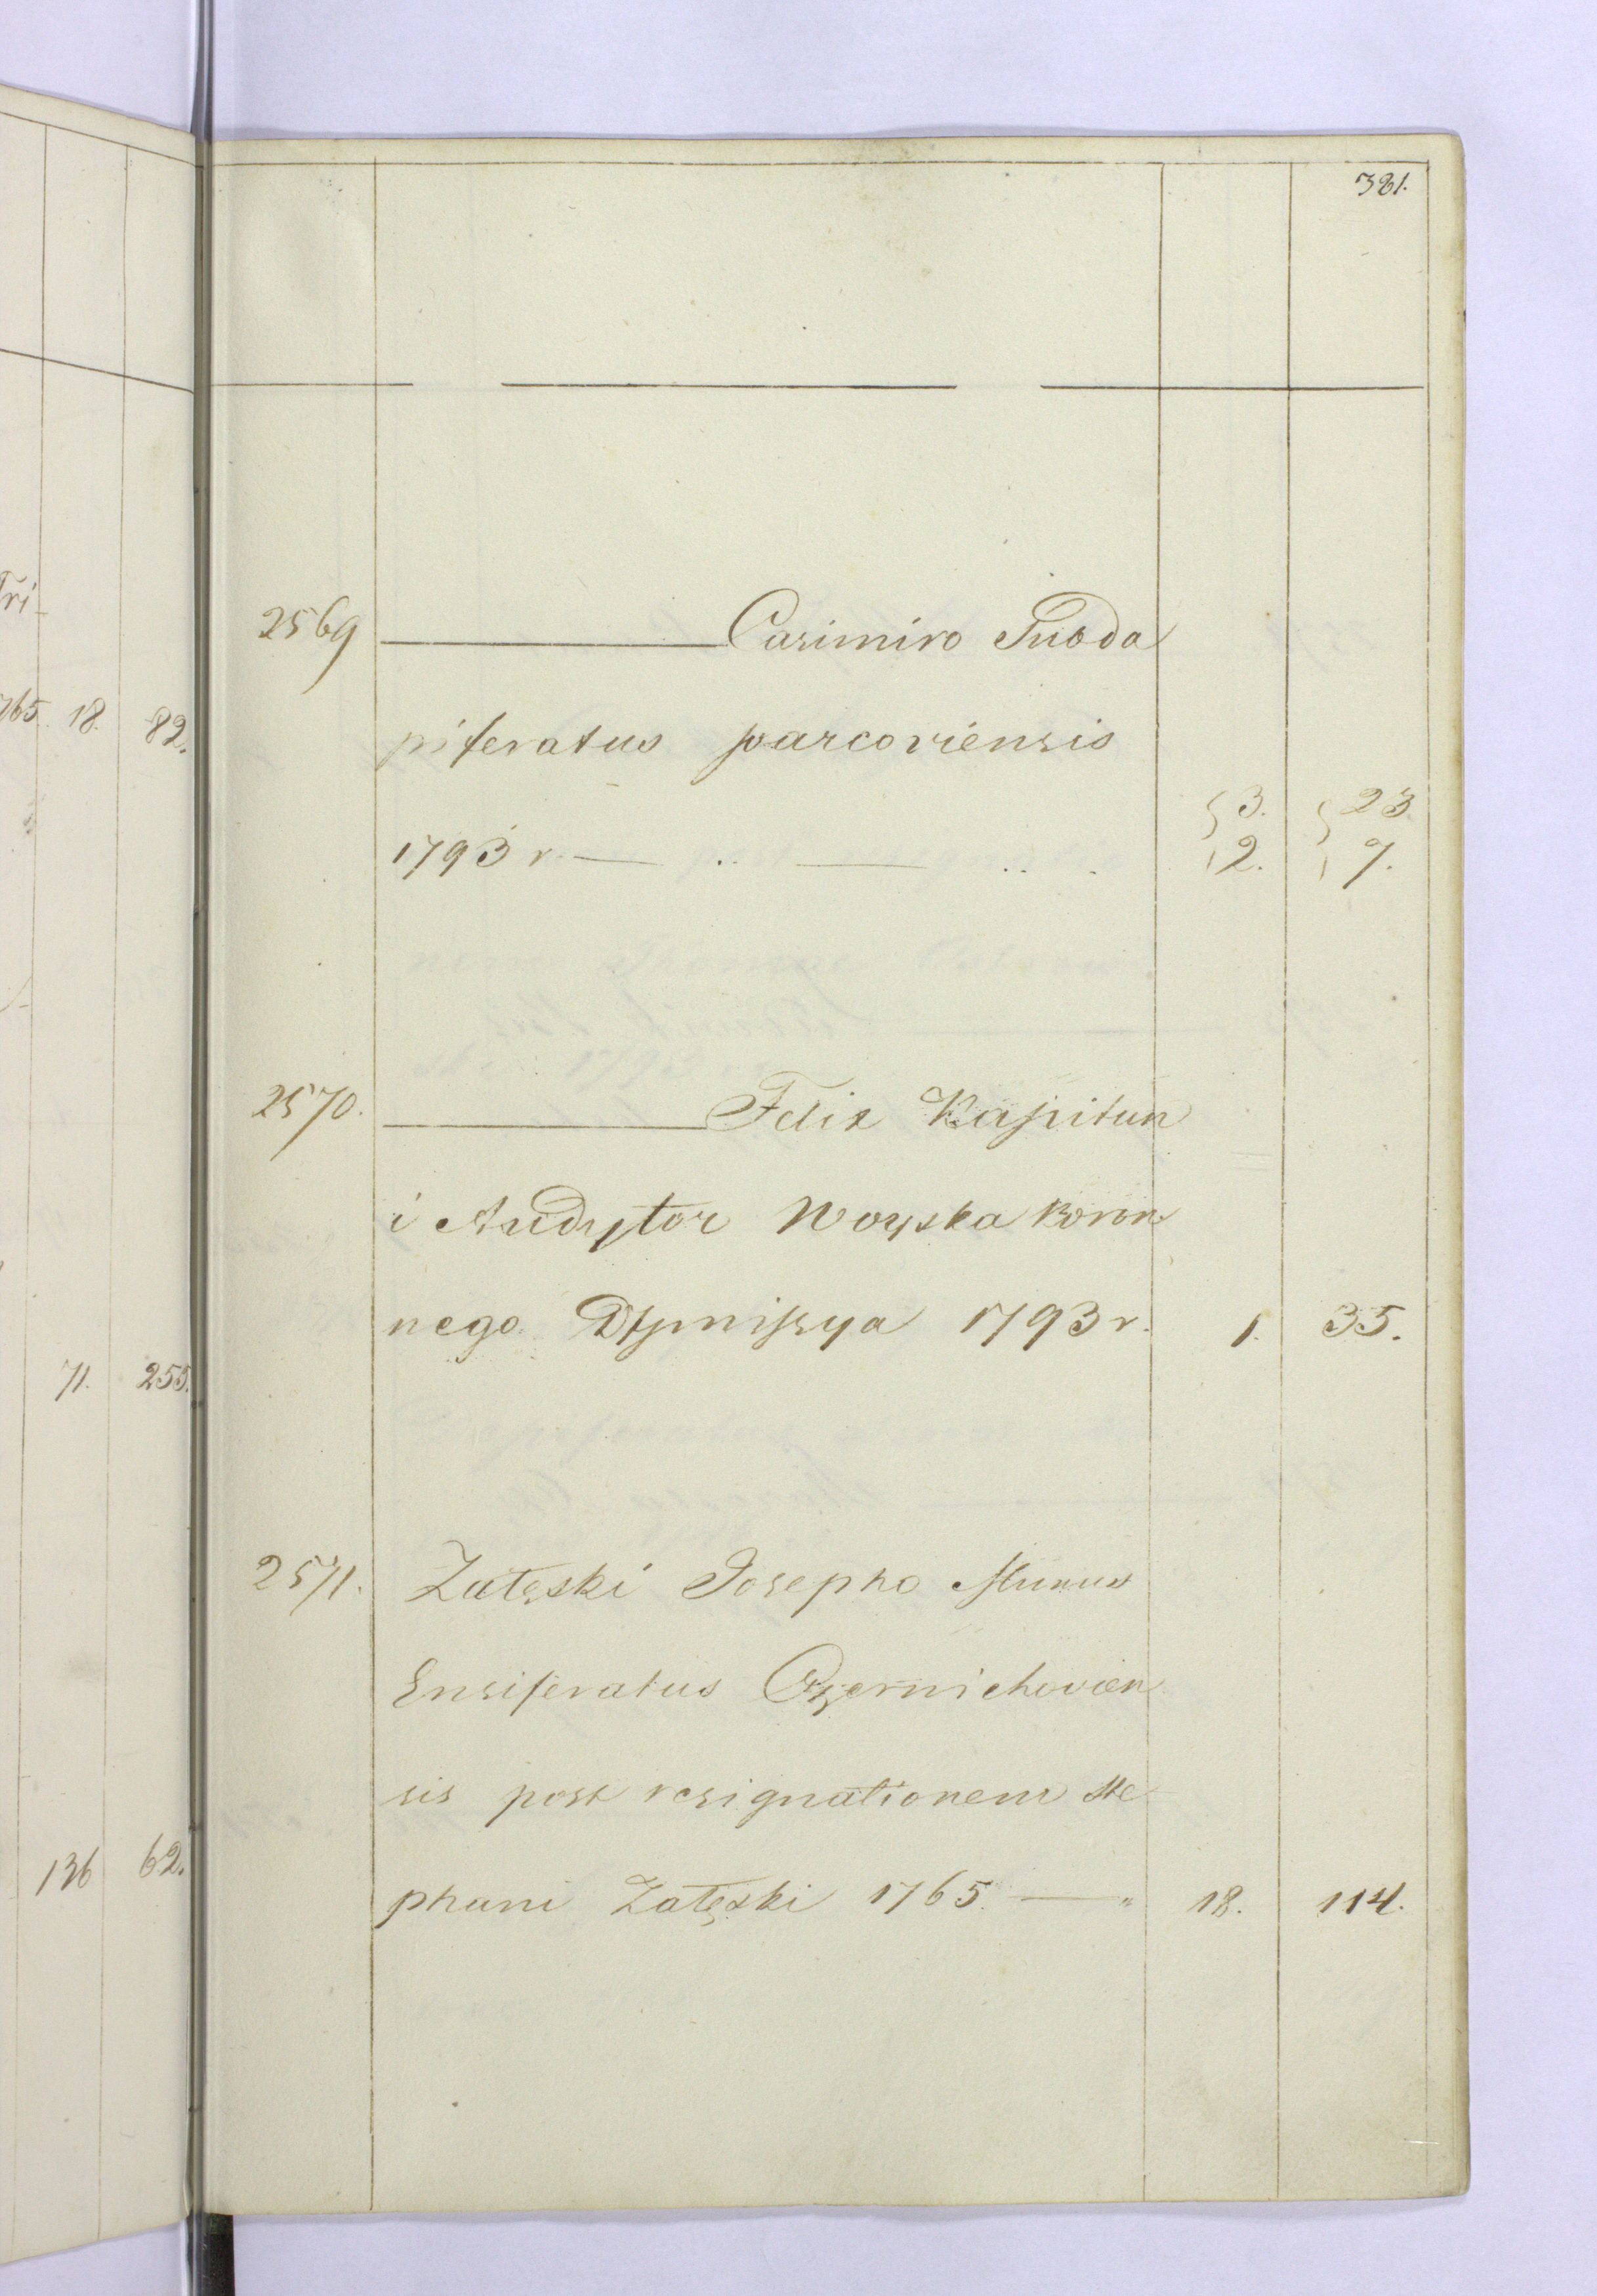 381.
2569 Casimiro Subda
piferatus parcoviensis
1793 r. 3. 23
2. 7.
2570. Felix Kapitan
i Audytor Woyska Koron
nego Dymissya 1793 r. 1. 35.
2571. Załęski Josepho Munus
Ensiferatus Czernichovien
sis post resignationem Ste
phani Załęski 1765. 18. 114.
765 18. 82.
71. 255.
136 62.